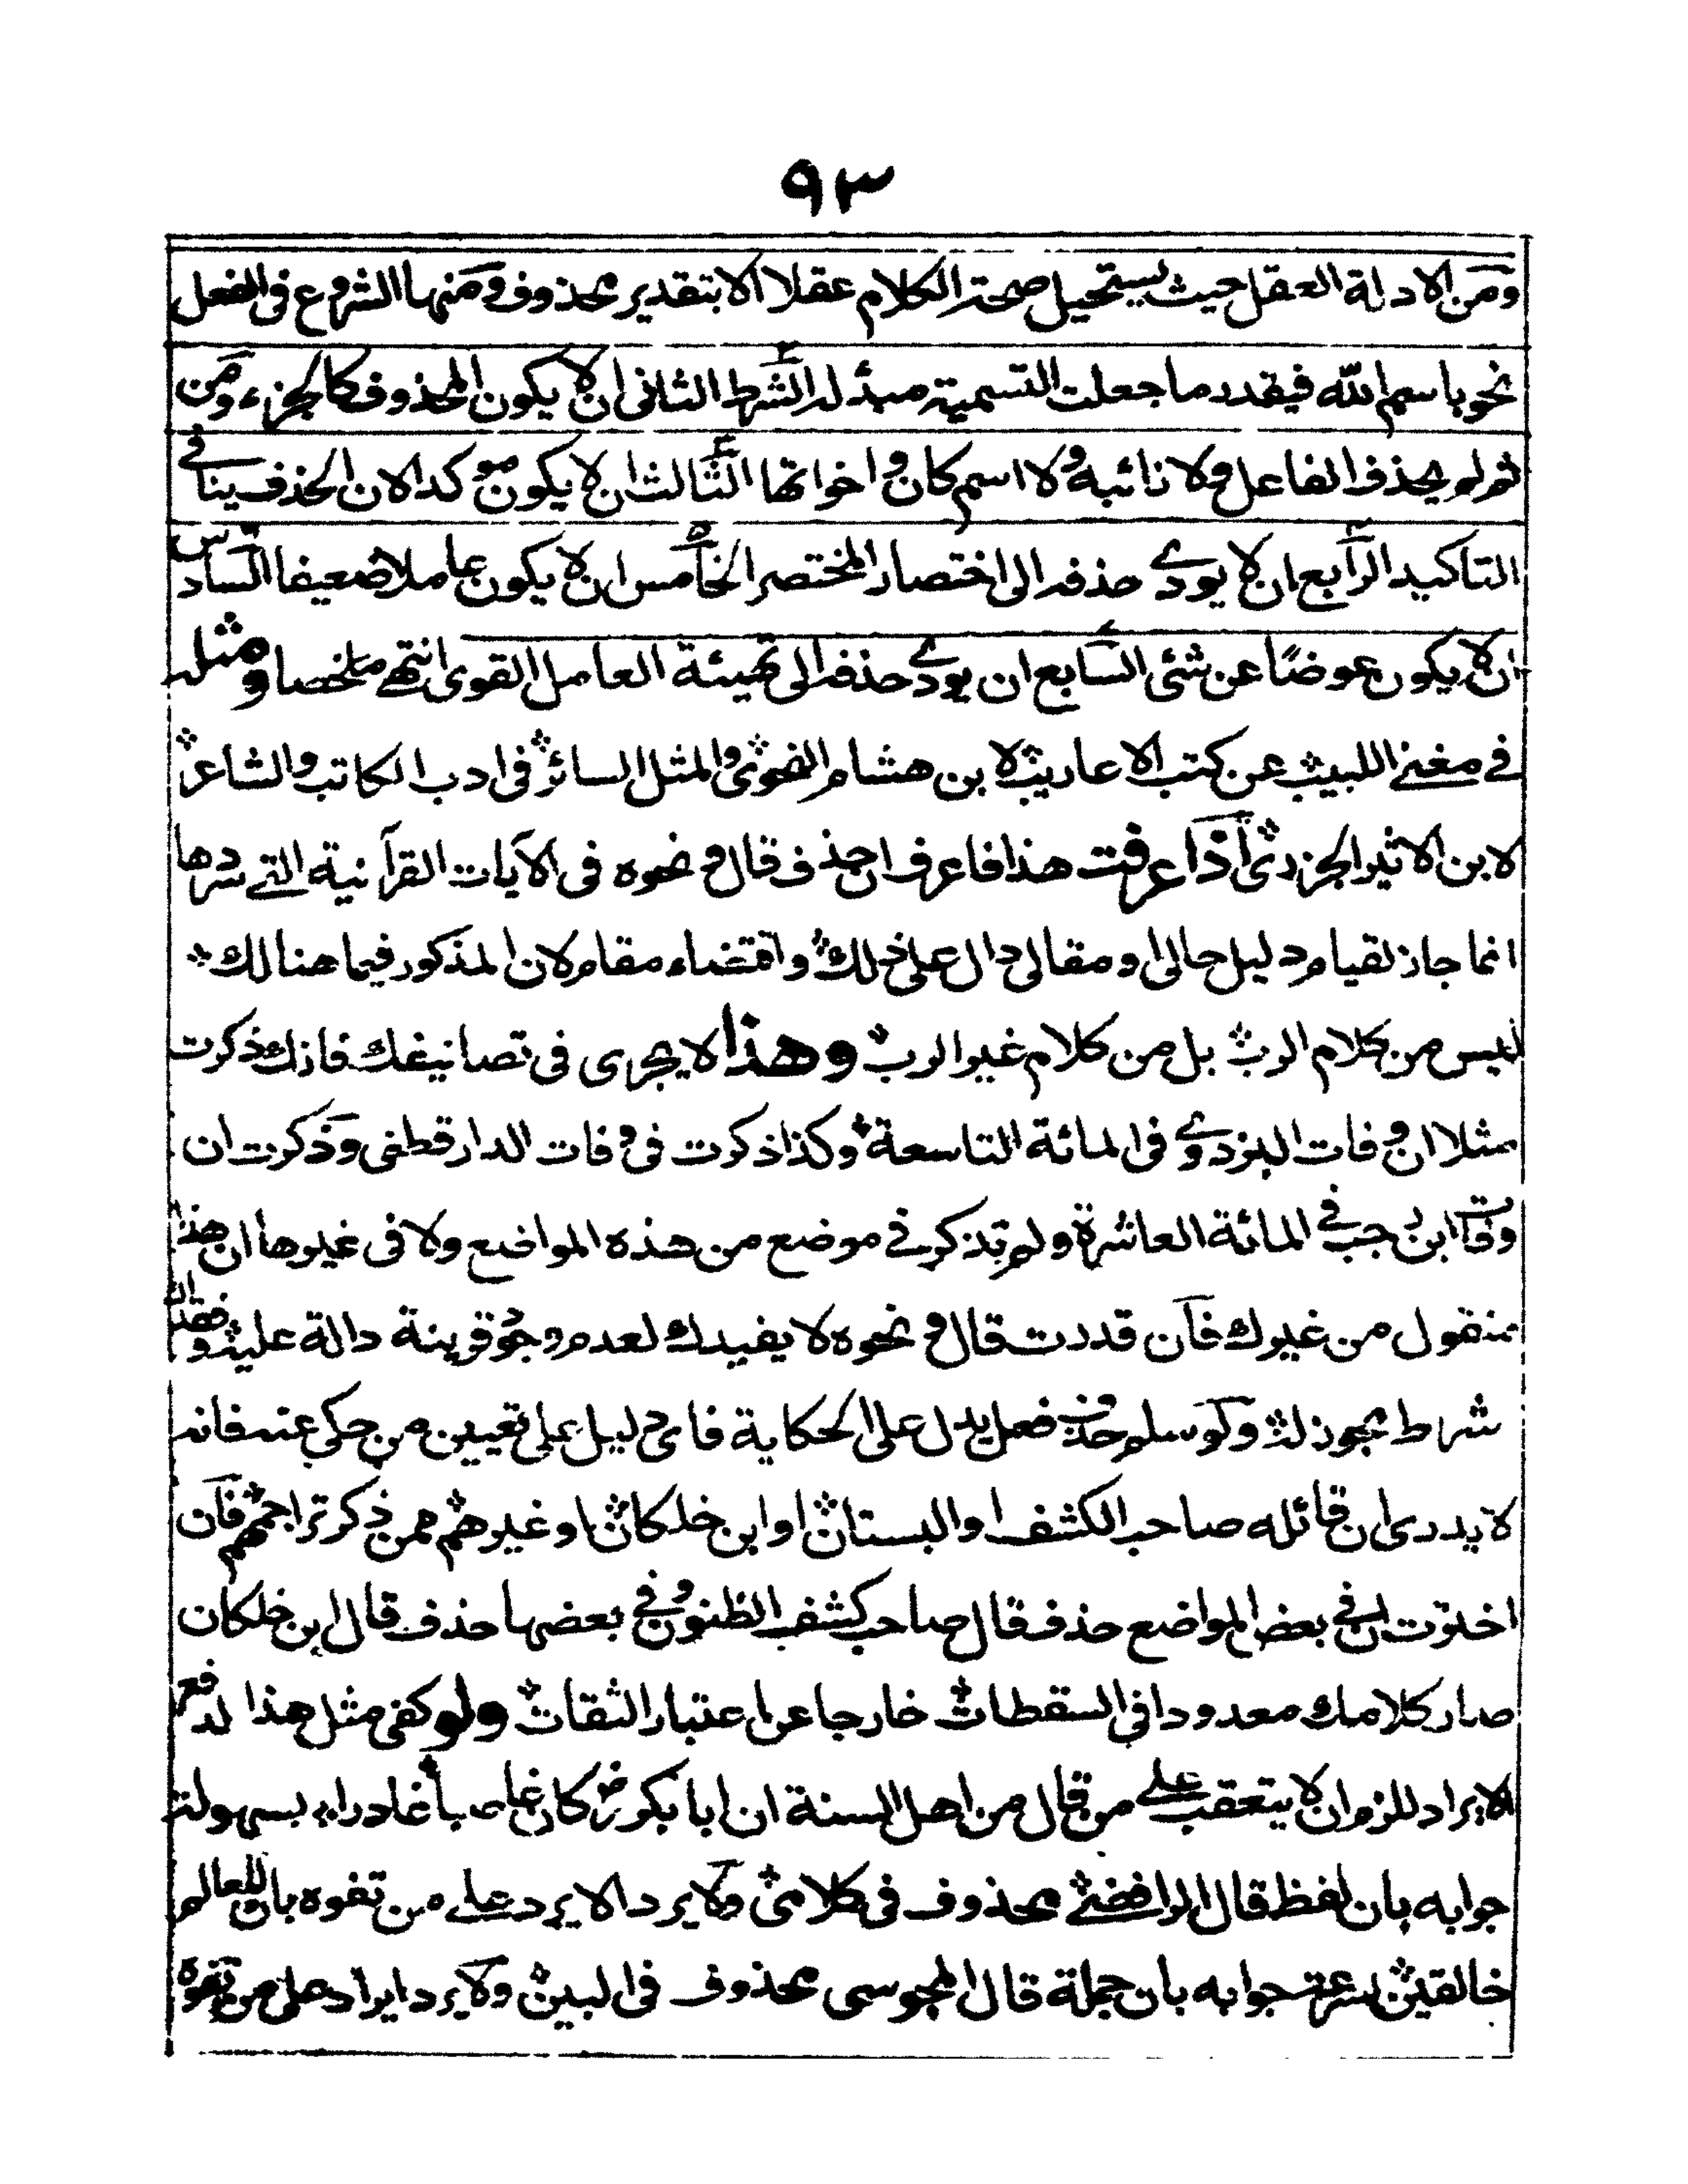 ٩٣
ومن الادلة العقل حيث يستحيل صحة الكلام عقلا الا بتقدير محذوف ومنها الشروع فى الفعل
نحو باسم الله فيقدر ما جعلت التسمية مبدأ له الشرط الثانى ان لا يكون المحذوف كالجزء ومن
ثم لم يحذف الفاعل ولا نائبه ولا اسم كان واخواتها الثالث ان لا يكون موكدا لان الحذف ينافى
التاكيد الرابع ان لا يودى حذفه الى اختصار المختصر الخامس ان لا يكون عاملا ضعيفا السادس
ان لا يكون عوضًا عن شئى السابع ان يودى حذفه الى تهيئة العامل القوى انتهى ملخصا ومثله
فى مغنى اللبيب عن كتب الاعاريب لابن هشام النحوى والمثل السائر فى ادب الكاتب والشاعر
لابن الاثير الجزرى اذا عرفت هذا فاعرف ان حذف قال ونحوه فى الآيات القرآنية التى سردها
انما جاز لقيام دليل حالى او مقالى دال على ذلك واقتضاء مقام لان المذكور فيما هنالك
ليس من كلام الرب بل من كلام غير الرب وهذا لا يجرى فى تصانيفك فانك ذكرت
مثلا ان وفات البزدوى فى المائة التاسعة وكذا ذكرت فى وفات الدار قطنى وذكرت ان
وفات ابن رجب فى المائة العاشرة ولم تذكر فى موضع من هذه المواضع ولا فى غيرها ان هذا
منقول من غيرك فان قدرت قال ونحوه لا يفيدك لعدم وجود قرينة دالة عليه وفقدان
شرط تجوز له ولو سلم حذف فعل يدل على الحكاية فاى دليل على تعيين من حكى عنه فانه
لا يدرى ان قائله صاحب الكشف او البستان او ابن خلكان او غيرهم ممن ذكر تراجمهم فان
اخترت ان فى بعض المواضع حذف قال صاحب كشف الظنون وفى بعضها حذف قال ابن خلكان
صار كلامك معدودا فى السقطات خارجا عن اعتبار الثقات ولو كفى مثل هذا لدفع
الايراد للزم ان لا يتعقب على من قال من اهل السنة ان ابا بكر رض كان غاصبا غادرا بسهولة
جوابه بان لفظ قال الرافضى محذوف فى كلامى ولا يرد الايراد على من تفوه بان للعالم
خالقين لسرعة جوابه بان جملة قال المجوسى محذوف فى البين ولا يرد ايراد على من تفوه